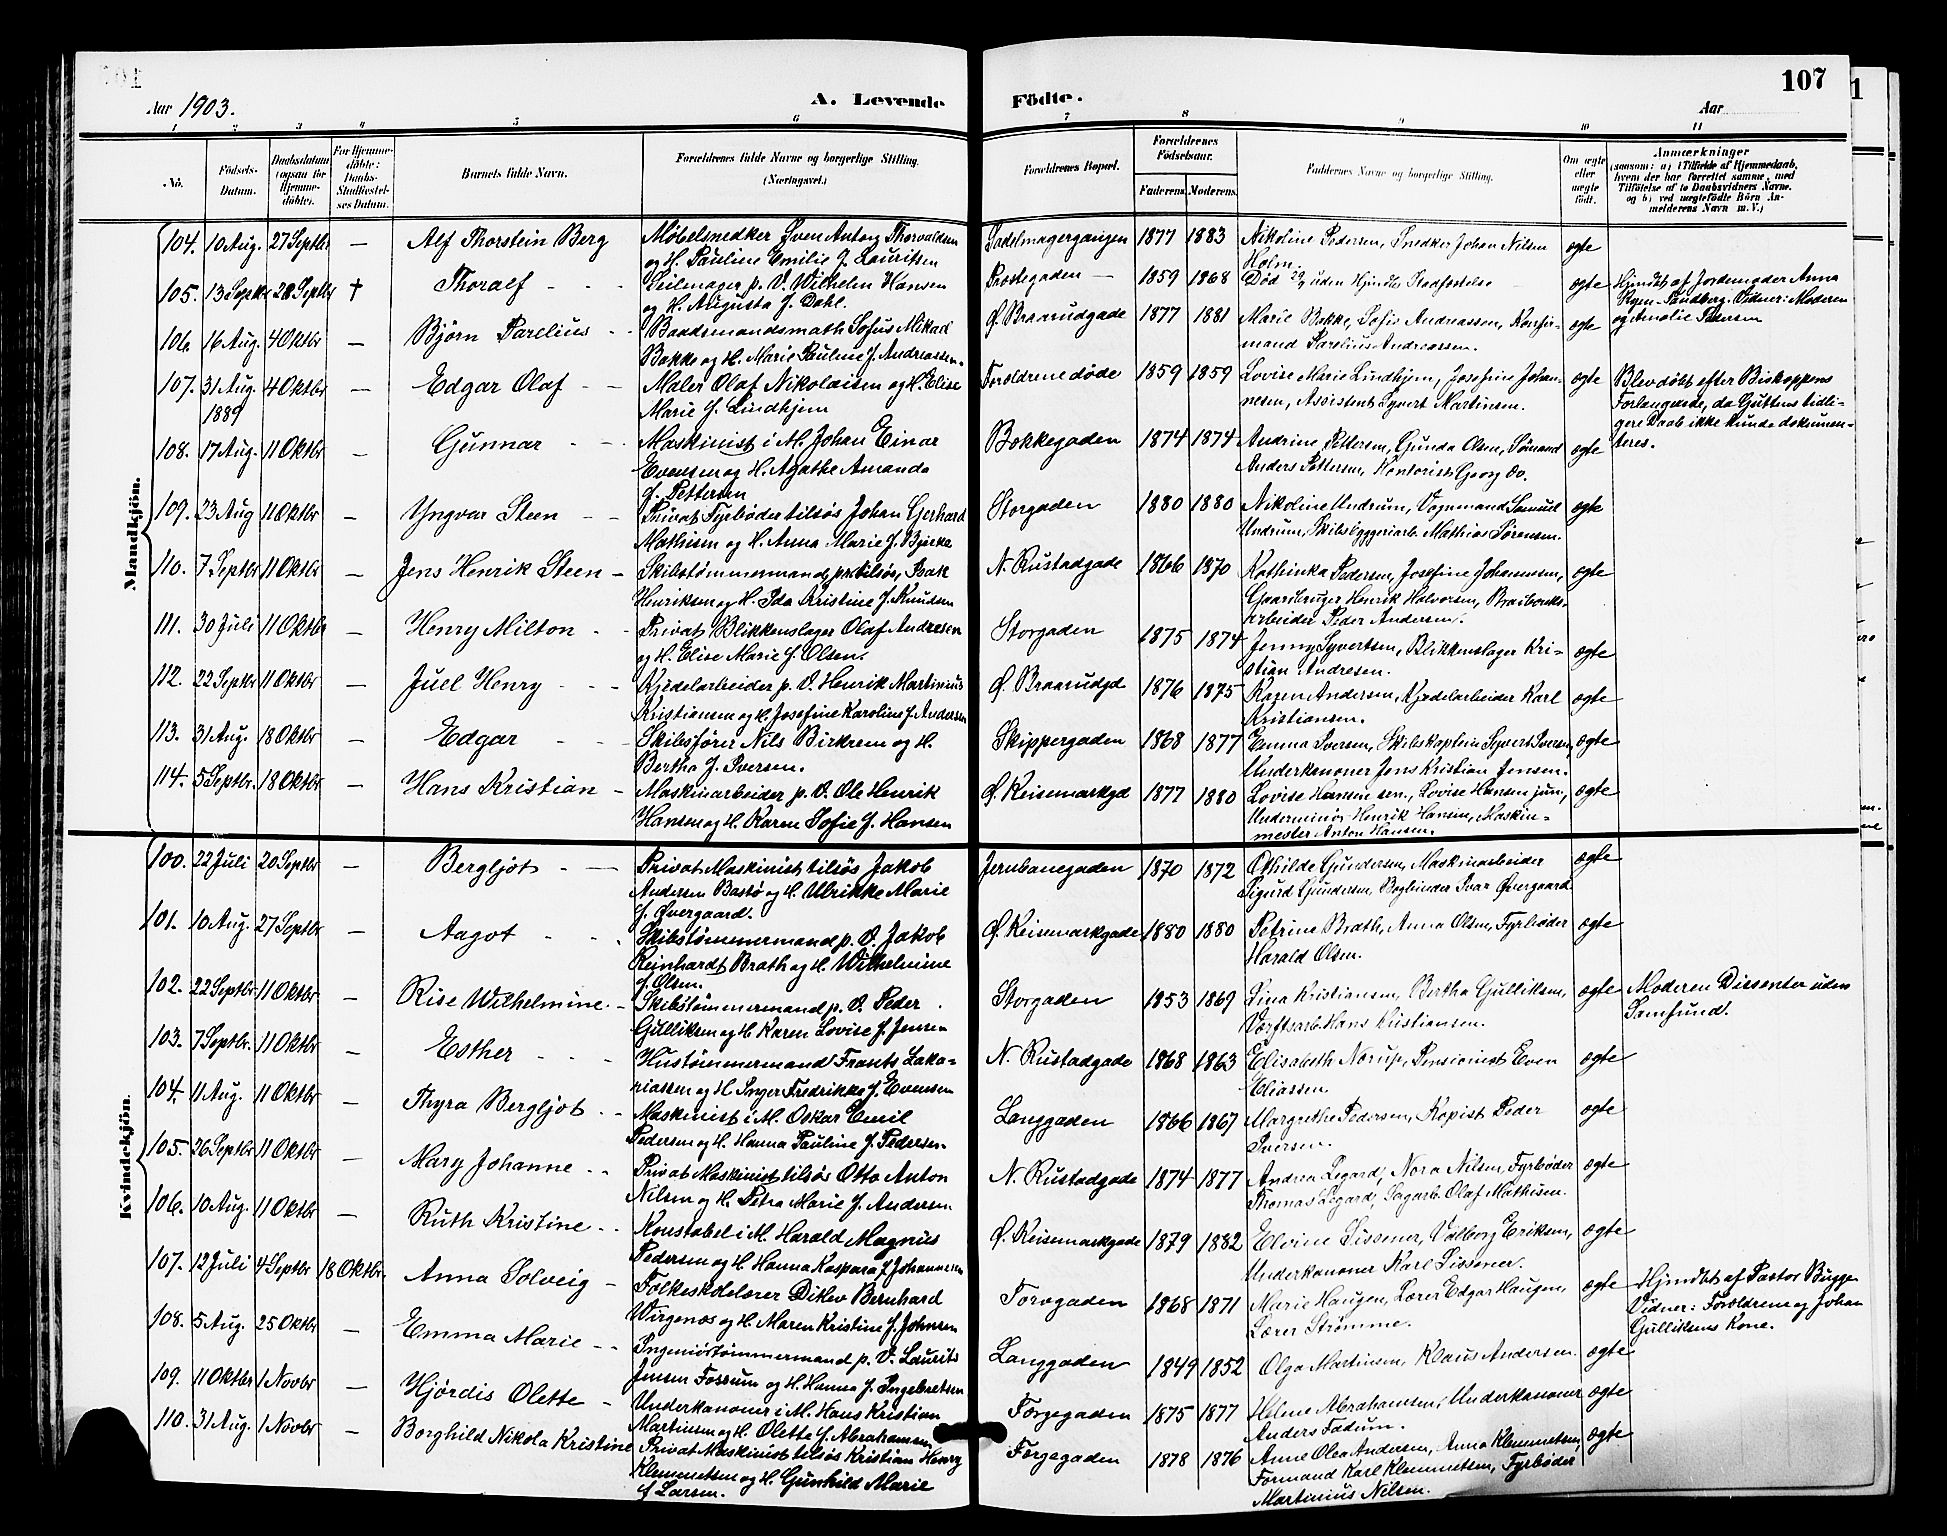 Aar 1903. A. Levende Födte. Aar 107
1 2 3 4 5 6 7 8 9 10 11
No. Födsels-Datum. Daabsdatum (ogsaa for Hjemmedöbte). For Hjemmedöbte: Daabs-Stadfæstelses Datum. Barnets fulde Navn. Forældrenes fulde Navne og borgerlige Stilling. (Næringsvei.) Forældrenes Bopæl. Forældrenes Födselsaar. Faderens. Moderens. Faddernes Navne og borgerlige Stilling. Om ægte eller uægte födt. Anmærkninger
Mandkjön.
104. 10 Aug. 27 Septbr — Alf Thorstein Berg Møbelsnedker Sven Antorg Thorvaldsen Sadelmagergangen 1877 1883 Nikoline Pedersen, Snedker Johan Nilsen ægte
og H. Pauline Emilie f. Lauritsen Holm.
105. 13 Septbr 28 Septbr † Thoralf Seilmager p. V. Wilhelm Hansen Præstegaden 1859 1868 Død 29/9 uden Hjmdbs Stadfæstelse ægte Hjmdbt af Jordemoder Anna
og H. Augusta f. Dahl. Ryen-Sandberg. Vidner: Moderen
og Amalie Pedersen
106. 16 Aug. 4 Oktbr — Bjørn Parelius Baadsmandsmath Sofus Mikael Ø. Braarudgade 1877 1881 Marie Bakke, Sofie Andreassen, Konfir- ægte
Bakke og H. Marie Pauline f. Andreassen. mand Parelius Andreassen.
107. 31 Aug. 4 Oktbr — Edgar Olaf Maler Olaf Nikolaisen og H. Elise Forældrene døde 1859 1859 Lovise Marie Lindhjem, Josefine Johan- ægte Blev døbt efter Biskoppens
1889 Marie f. Lindhjem nesen, Assistent Syvert Martinsen. Forlangende, da Guttens tidli-
gere Daab ikke kunde dokumen-
teres.
108. 17 Aug. 11 Oktbr — Gunnar Maskinist i M. Johan Einar Bakkegaden 1874 1874 Andrine Pettersen, Gunda Olsen, Sømand ægte
Evensen og H. Agathe Amanda Anders Pettersen, Kontorist Georg Os.
f. Pettersen
109. 23 Aug 11 Oktbr — Yngvar Steen Privat Fyrbøder tilsøs Johan Gerhard Storgaden 1880 1880 Nikoline Undrum, Vognmand Samuel ægte
Mathisen og H. Anna Marie f. Bjerke Undrum, Skibsbyggeriarb. Mathias Sørensen.
110. 7 Septbr 11 Oktbr — Jens Henrik Steen Skibstømmermand privat tilsøs, Isak N. Rustadgade 1866 1870 Kathinka Pedersen, Josefine Johannesen, ægte
Henriksen og H. Ida Kristine f. Knudsen Gaardbruger Henrik Halvorsen, Bræiboeks-
arbeider Peder Andersen.
111. 30 Juli 11 Oktbr — Henry Milton Privat Blikkenslager Olaf Andresen Storgaden 1875 1874 Jenny Syvertsen, Blikkenslager Kri- ægte
og H. Elise Marie f. Olsen. stian Andresen.
112. 22 Septbr 11 Oktbr — Juel Henry Kjedelarbeider p. V. Henrik Martinius Ø. Braarudgd 1876 1875 Karen Andersen, Kjedelarbeider Karl ægte
Kristiansen og H. Josefine Karoline f. Andersen Kristiansen.
113. 31 Aug. 18 Oktbr — Edgar Skibsfører Nils Birkrem og H. Skippergaden 1868 1877 Emma Iversen, Skibskaptein Syvert Iversen, ægte
Bertha f. Iversen. Underkanoner Jens Kristian Jensen.
114. 5 Septbr. 18 Oktbr — Hans Kristian Maskinarbeider p. V. Ole Henrik Ø. Keisemarkgd 1877 1880 Lovise Hansen sen., Lovise Hansen jun., ægte
Hansen og H. Karen Sofie f. Hansen Underminør Henrik Hansen, Maskin-
mester Anton Hansen.
Kvindekjön.
100. 22 Juli 20 Septbr — Bergljot Privat Maskinist tilsøs Jakob Jernbanegaden 1870 1872 Othilde Gundersen, Maskinarbeider ægte
Andersen Bastø og H. Ulrikke Marie Sigurd Gundersen, Bogbinder Ivar Øvergaard.
f. Øvergaard.
101. 10 Aug. 27 Septbr — Aagot Skibstømmermand p. V. Jakob Ø. Keisemarkgade 1880 1880 Petrine Brath, Anna Olsen, Fyrbøder ægte
Reinhardt Brath og H. Wilhelmine Harald Olsen.
f. Olsen.
102. 22 Septbr 11 Oktbr — Rise Wilhelmine Skibstømmermand p. V. Peder Storgaden 1853 1869 Lina Kristiansen, Bertha Gulliksen, ægte Moderen Dissenter uden
Gulliksen og H. Karen Lovise f. Jensen Værftsarb. Hans Kristiansen. Samfund.
103. 7 Septbr. 11 Oktbr — Esther Hustømmermand Frants Zaka- N. Rustadgade 1868 1863 Elisabeth Nørup, Pensionist Even ægte
riassen og H. Inger Fredrikke f. Evensen Eliassen.
104. 11 Aug. 11 Oktbr — Thyra Bergljot Maskinist i M. Oskar Emil Langgaden 1866 1867 Margrethe Pedersen, Kopist Peder ægte
Pedersen og H. Hanna Pauline f. Pedersen Iversen.
105. 26 Septbr 11 Oktbr — Mary Johanne Privat Maskinist tilsøs Otto Anton N. Rustadgade 1874 1877 Andrea Legard, Nora Nilsen, Fyrbøder ægte
Nilsen og H. Petra Marie f. Andersen Thomas Legard, Sagarb. Olaf Mathisen.
106. 10 Aug. 11 Oktbr — Ruth Kristine Konstabel i M. Harald Magnus Ø. Keisemarkgade 1879 1882 Elvine Sissener, Valborg Eriksen, ægte
Pedersen og H. Hanna Kaspara f. Johannesen Underkanoner Karl Sissener.
107. 12 Juli 4 Septbr 18 Oktbr. Anna Solveig Folkeskolelærer Ditlev Bernhard Torvgaden 1868 1871 Marie Haugen, Lærer Edgar Haugen, ægte Hjmdbt af Pastor Bugge
Wirgenæs og H. Maren Kristine f. Johnsen Lærer Strømme. Vidner: Forældrene og Johan
Gulliksens Kone.
108. 5 Aug. 25 Oktbr — Emma Marie Ingeniørtømmermand p. V. Laurits Langgaden 1849 1852 Olga Martinsen, Klaus Andersen. ægte
Jensen Fossum og H. Hanna f. Ingebretsen
109. 11 Oktbr 1 Novbr — Hjørdis Olette Underkanoner i M. Hans Kristian Torvgaden 1875 1877 Helene Abrahamsen, Underkanoner ægte
Martinsen og H. Olette f. Abrahamsen Anders Fadum.
110. 31 Aug. 1 Novbr — Borghild Nikola Kristine Privat Maskinist tilsøs Kristian Henry Torvgaden 1878 1876 Anne Olea Andersen, Anna Klemmetsen, ægte
Klemmetsen og H. Gunhild Marie Formand Karl Klemmetsen, Fyrbøder
f. Larsen. Martinius Nilsen.